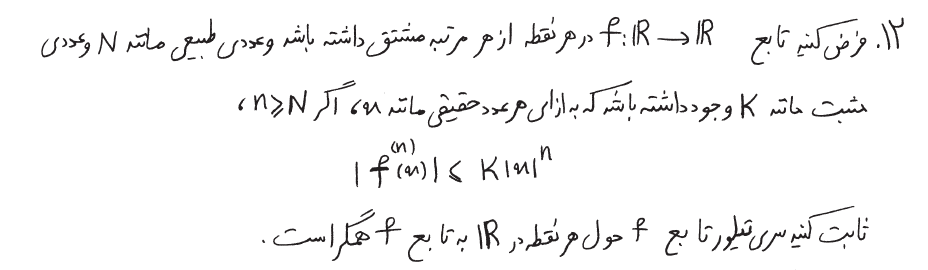 ۱۲. فرض کنید تابع f: ℝ → ℝ در هر نقطه از هر مرتبه مشتق داشته باشد و عددی طبیعی مانند N و عددی
مثبت مانند K وجود داشته باشد که به ازای هر عدد حقیقی مانند x، اگر n ≥ N،
|f⁽ⁿ⁾(x)| ≤ K|x|ⁿ
ثابت کنید سری تیلور تابع f حول هر نقطه در ℝ به تابع f همگراست.